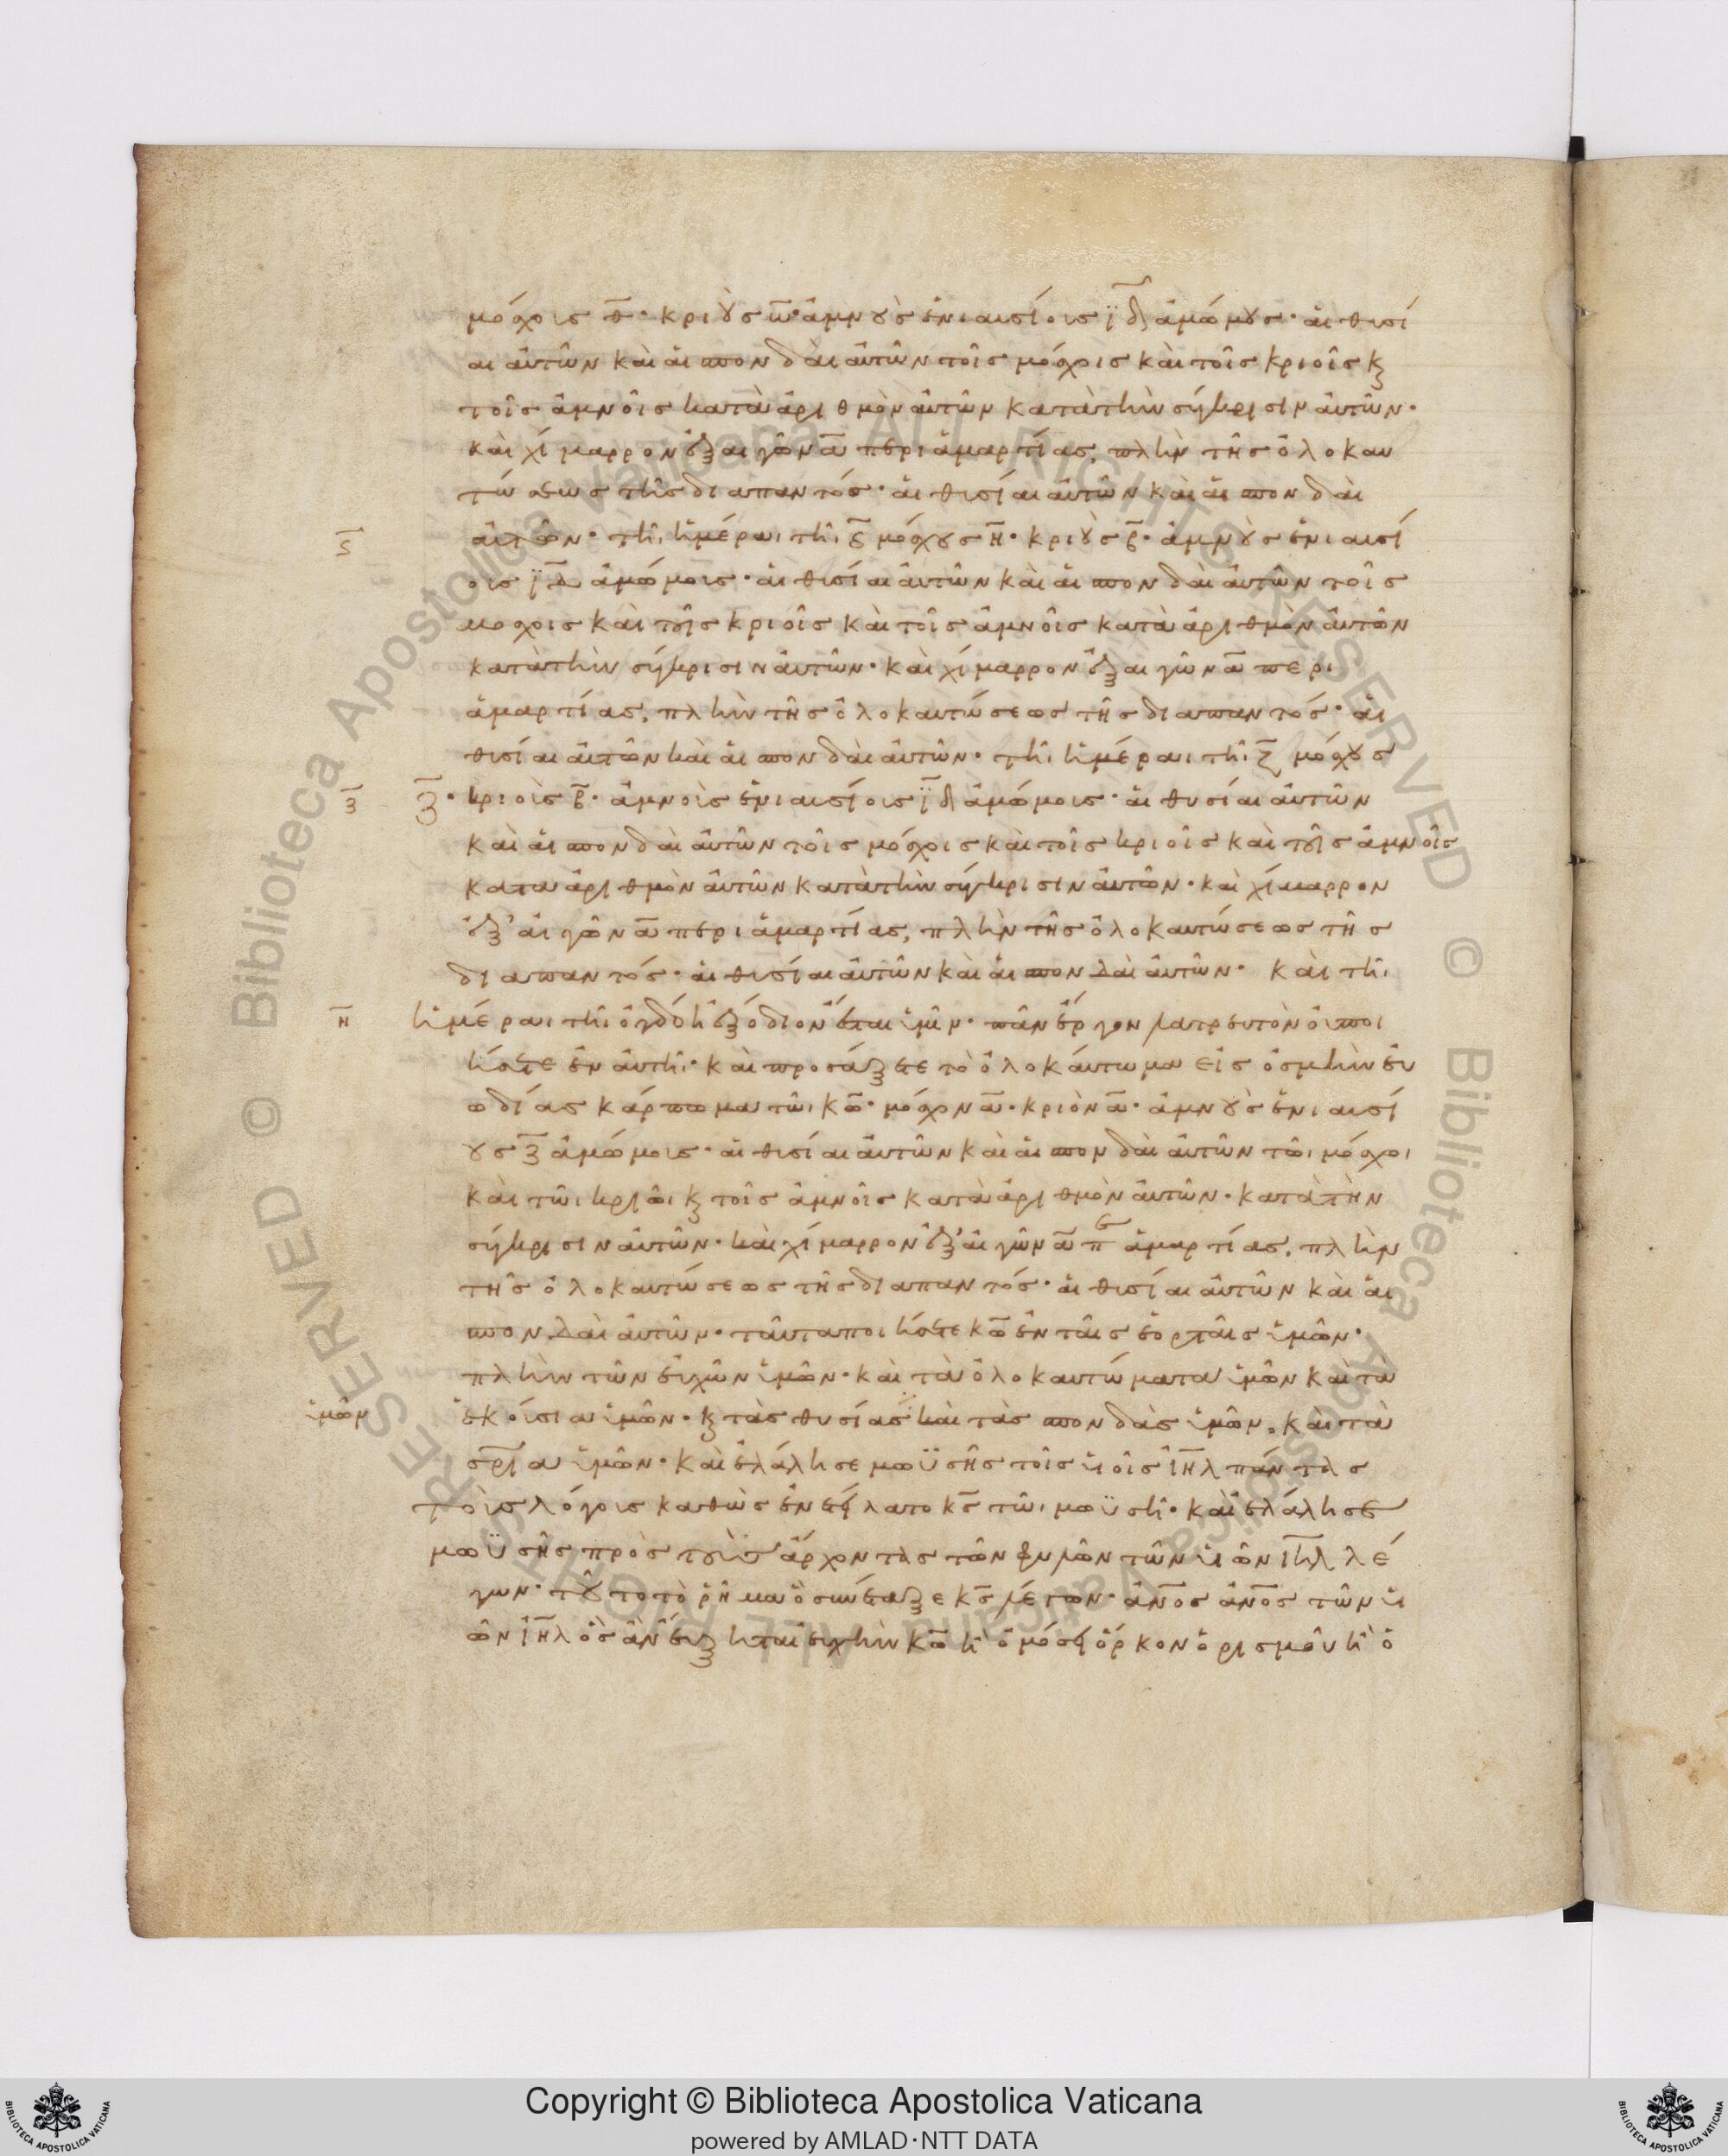 μόχοις θ̅· κριοὺς β̅· ἀμνοὺς ἐνιαυσίοις ϊδ̅ ἀμώμους· αἱ θυσί
αι αὐτῶν καὶ αἱ σπονδαὶ αὐτῶν τοῖς μόσχοις καὶ τοῖς κριοῖς κ
τοῖς ἀμνοῖς κατὰ ἀριθμὸν αὐτῶν κατὰ τὴν σύγκρισιν αὐτῶν·
καὶ χίμαρρον ἐξ αἰγῶν α̅ περι ἁμαρτίας, πλὴν τῆς ὁλοκαυ
τώσεως τῆς διαπαντός· αἱ θυσίαι αὐτῶν καὶ αἱ σπονδαὶ
αὐτῶν· τῆι ἡμέραι τῆι ϛ̅ μόσχους η̅· κριοὺς β̅· ἀμνοὺς ἐνιαυσί
ϛ̅
οις ϊδ̅ ἀμώμοις· αἱ θυσίαι αὐτῶν καὶ αἱ σπονδαὶ αὐτῶν τοῖς
μοσχοις καὶ τοῖς κριοῖς καὶ τοῖς ἀμνοῖς κατὰ ἀριθμὸν αὐτῶν
κατὰ τὴν σύγκρισιν αὐτῶν· καὶ χίμαρρον ἐξ αἰγῶν α̅ περι
ἁμαρτίας, πλὴν τῆς ὁλοκαυτώσεως τῆς διαπαντός· αἱ
θυσίαι αὐτῶν καὶ αἱ σπονδαὶ αὐτῶν· τῆι ἡμέραι τῆι ζ̅ μόσχους
ζ̅
ζ̅· κριοὶς β̅· ἀμνοὶς ἐνιαυσίοις ϊδ̅ ἀμώμοις· αἱ θυσίαι αὐτῶν
καὶ αἱ σπονδαὶ αὐτῶν τοῖς μόσχοις καὶ τοῖς κριοῖς καὶ τοῖς ἀμνοῖς
κατα ἀριθμὸν αὐτῶν κατὰ τὴν σύγκρισιν αὐτῶν· καὶ χίμαρρον
ἐξ αἰγῶν α̅ περι ἁμαρτίας, πλὴν τῆς ὁλοκαυτώσεως τῆς
διαπαντός· αἱ θυσίαι αὐτῶν καὶ αἱ σπονδαὶ αὐτῶν· καὶ τῆι
η̅
ἡμέραι τῆι ὀγδόη ἐξόδιον ἔσται ὑμῖν· πᾶν ἔργον λατρευτὸν οὐ ποι
ήσετε ἐν αὐτῆι· καὶ προσάξετε τὸ ὁλοκάυτωμα εἰς ὀσμὴν εὐ
ωδίας κάρπωμα τῶι κω̅· μόσχον α̅· κριὸν α̅· ἀμνοὺς ἐνιαυσί
ους ζ̅ ἀμώμοις· αἱ θυσίαι αὐτῶν καὶ αἱ σπονδαὶ αὐτῶν τῶι μόσχωι
καὶ τῶι κριῶι κ τοῖς ἀμνοῖς κατὰ ἀριθμὸν αὐτῶν· κατὰ τὴν
σύγκρισιν αὐτῶν· καὶ χίμαρρον ἐξ αἰγῶν α̅ π ἁμαρτίας, πλὴν
τῆς ὁλοκαυτώσεως τῆς διαπαντός· αἱ θυσίαι αὐτῶν καὶ αἱ
σπονδαὶ αὐτῶν· ταῦτα ποιήσετε κω̅ ἐν ταῖς ἑορταῖς ὑμῶν·
πλὴν τῶν εὐχῶν ὑμῶν· καὶ τὰ ὁλοκαυτώματα ὑμῶν καὶ τὰ
ὑμῶν
ἑκούσια ὑμῶν· κ τὰς θυσίας καὶ τὰς σπονδὰς ὑμῶν. καὶ τὰ
σρ̅ια ὑμῶν· καὶ ἐλάλησε μωϋσῆς τοῖς υἱοῖς ιη̅λ πάντας
τοὺς λόγοις καθὼς ἐνετείλατο κς̅ τῶι μωϋσῆ· καὶ ἐλάλησε
μωϋσῆς πρὸς τοὺς ἄρχοντας τῶν φυλῶν τῶν υἱῶν ιη̅λ λέ
γων· τοῦτο τὸ ῥῆμα ὃ συνέταξε κς̅ λέγων· ἀν̅ος ἀν̅ος τῶν υἱ
ῶν ιη̅λ ὃς ἂν εὔξηται εὐχὴν κω̅ ἢ ὀμόσει ὅρκον ὁρισμοῦ ἢ ὁ
Copyright © Biblioteca Apostolica Vaticana
powered by AMLAD·NTT DATA